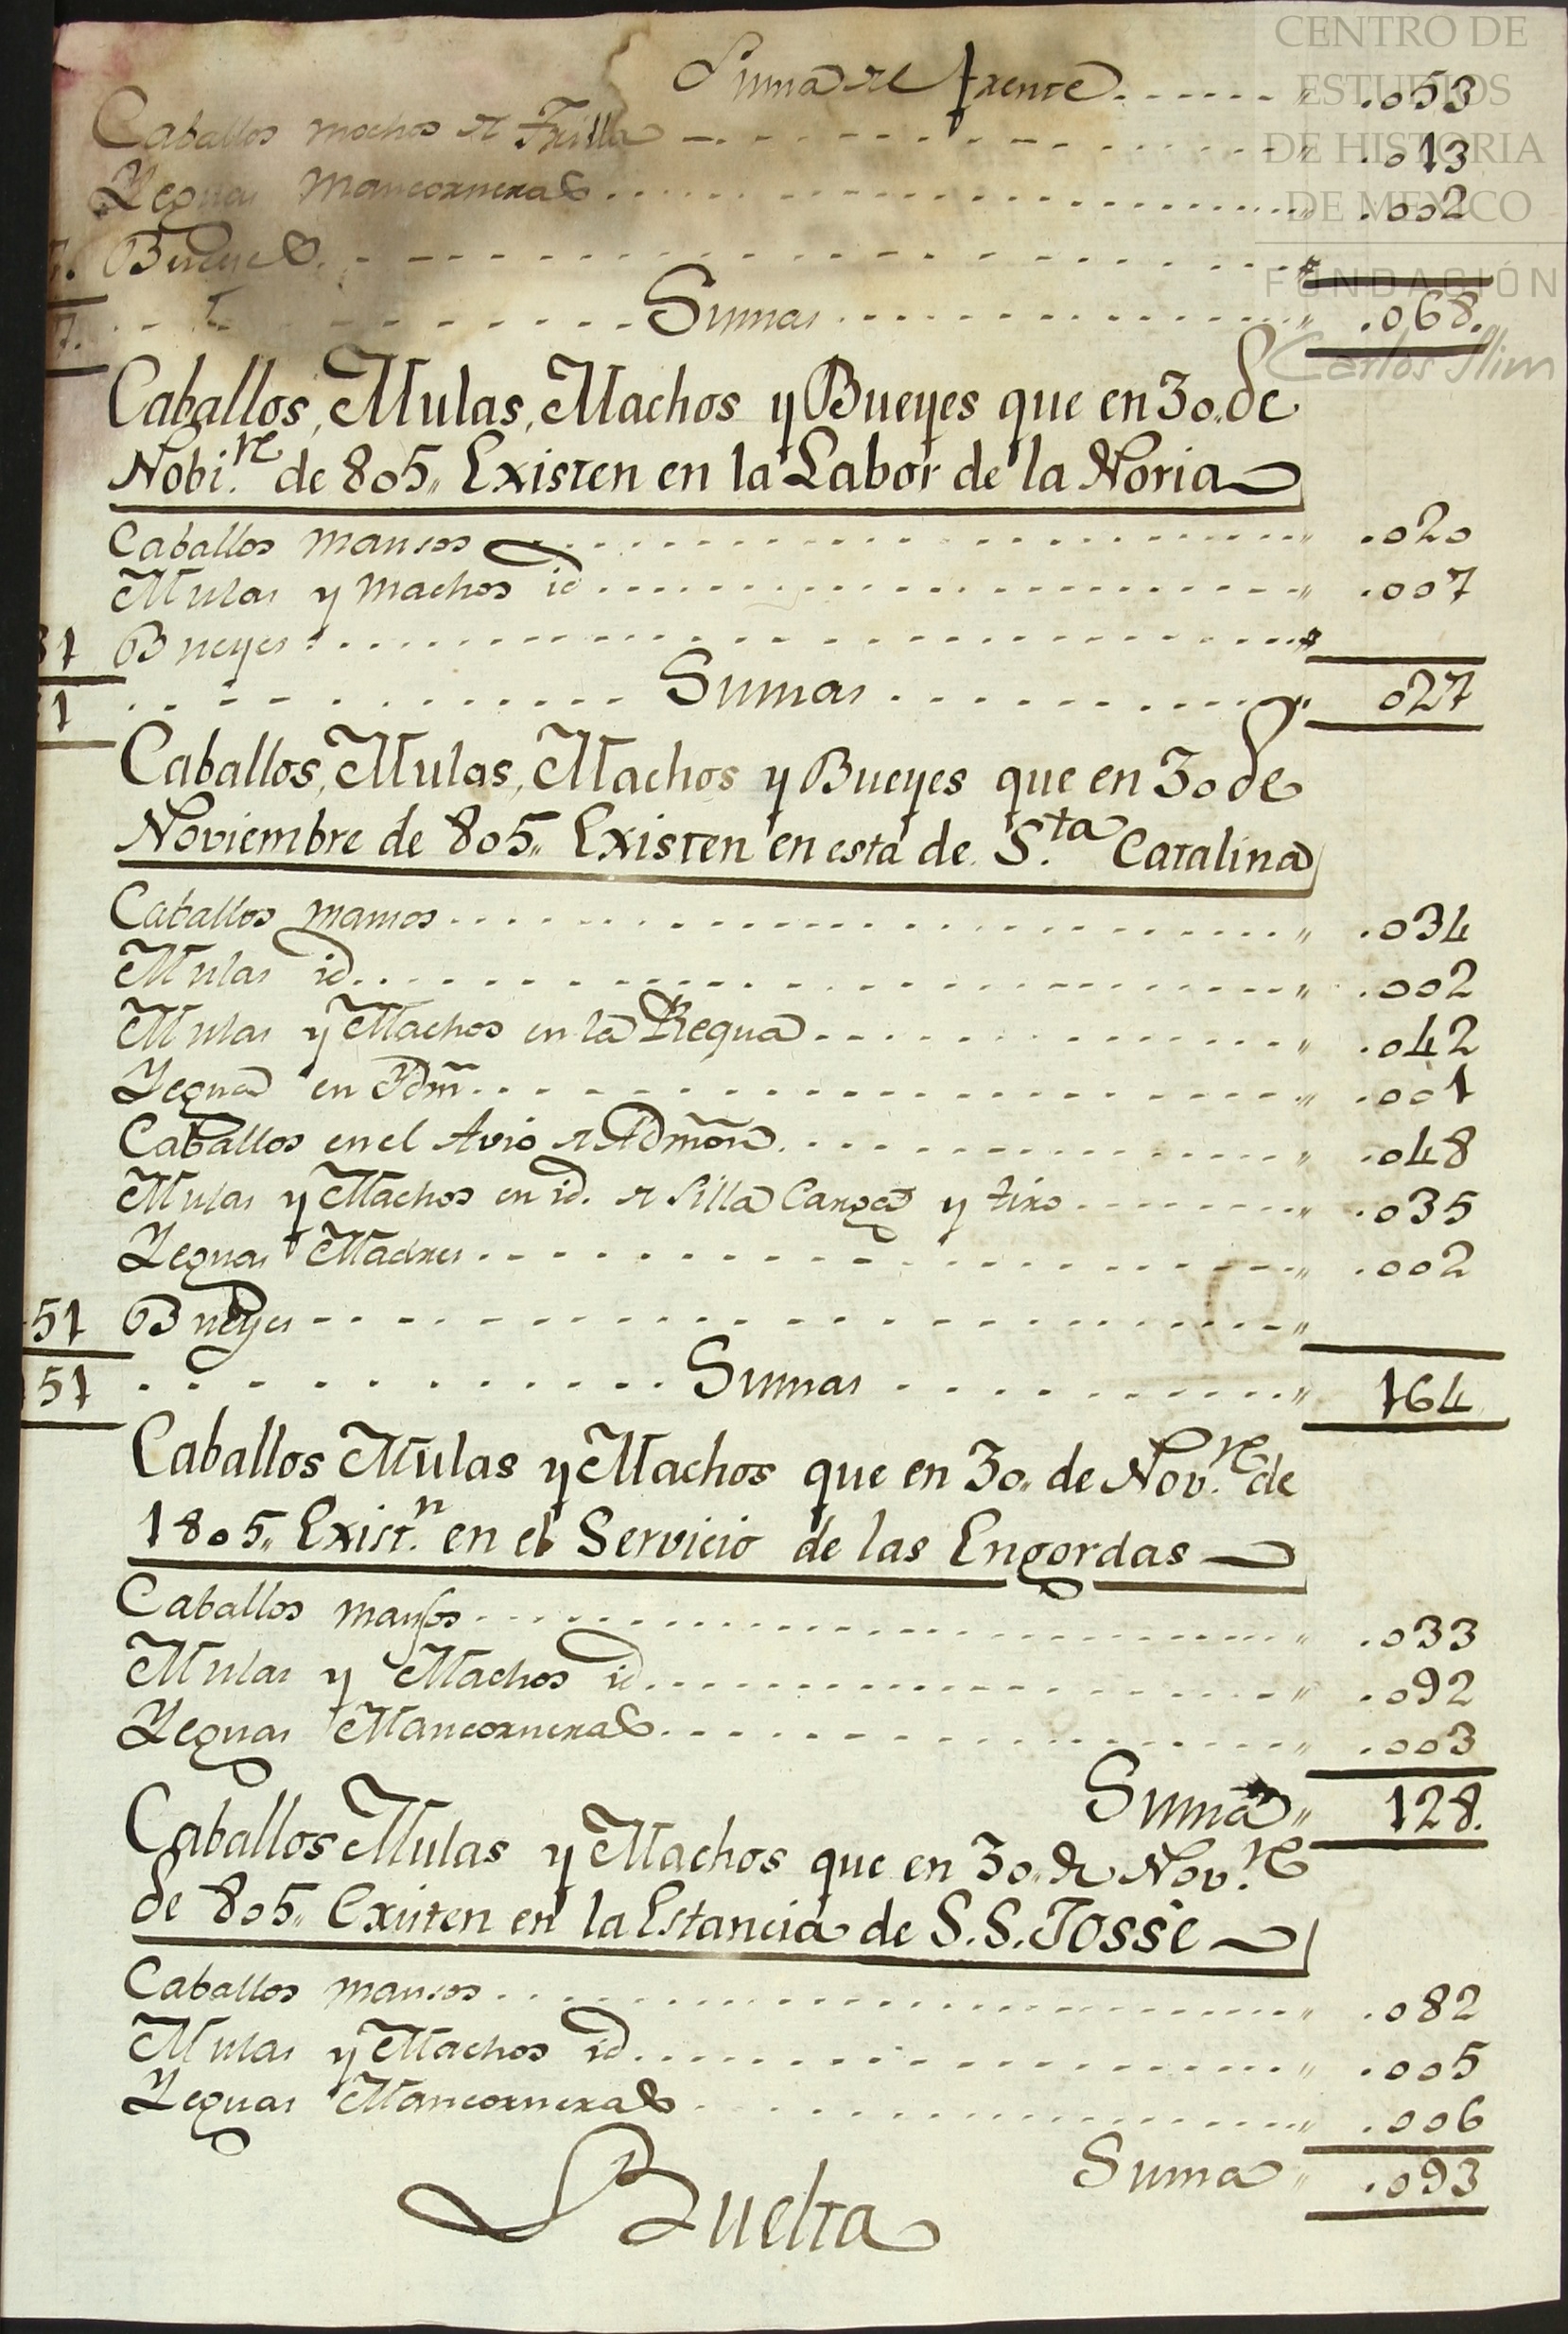 CENTRO DE
ESTUDIOS
DE HISTORIA
DE MEXICO
FUNDACIÓN
Carlos Slim
Suma del frente " .053
Caballos mochos de Trilla " .013
Yeguas Mancorneras " .002
7. Bueyes "
7. Sumas " .068.
Caballos, Mulas, Machos y Bueyes que en 30,, de
Nobi.re de 805,, Existen en la Labor de la Noria
Caballos mansos " .020
Mulas y Machos id " .007
31 Bueyes "
1 Sumas " 027
Caballos, Mulas, Machos y Bueyes que en 30 de
Noviembre de 805,, Existen en esta de S.ta Catalina
Caballos mansos " .034
Mulas id " .002
Mulas y Machos en la Requa " .042
Yegua en Idm " .001
Caballos en el Avio de Admōn " .048
Mulas y Machos en id. de silla Carga y tiro " .035
Yeguas Madres " .002
51 Bueyes "
51 Sumas " 164
Caballos Mulas y Machos que en 30,, de Nov.re de
1805,, Exist.n en el Servicio de las Engordas
Caballos mansos " .033
Mulas y Machos id " .092
Yeguas Mancorneras " .003
Suma " 128.
Caballos Mulas y Machos que en 30,, de Nov.re
de 805,, Existen en la Estancia de S.S. Josse
Caballos mansos " .082
Mulas y Machos id " .005
Yeguas Mancorneras " .006
Suma " .093
Buelta